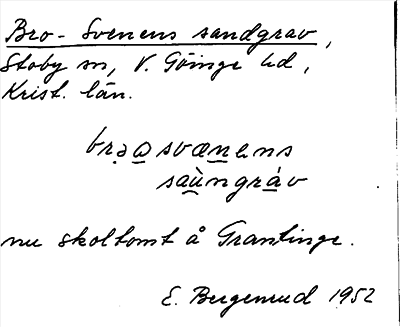 Bro-Svenens sandgrav,
Stoby sn, V. Göinge hd,
Krist. län.
brəɷsvænens
saùngráv
nu skoltomt å Grantinge.
E. Bergenrud 1952